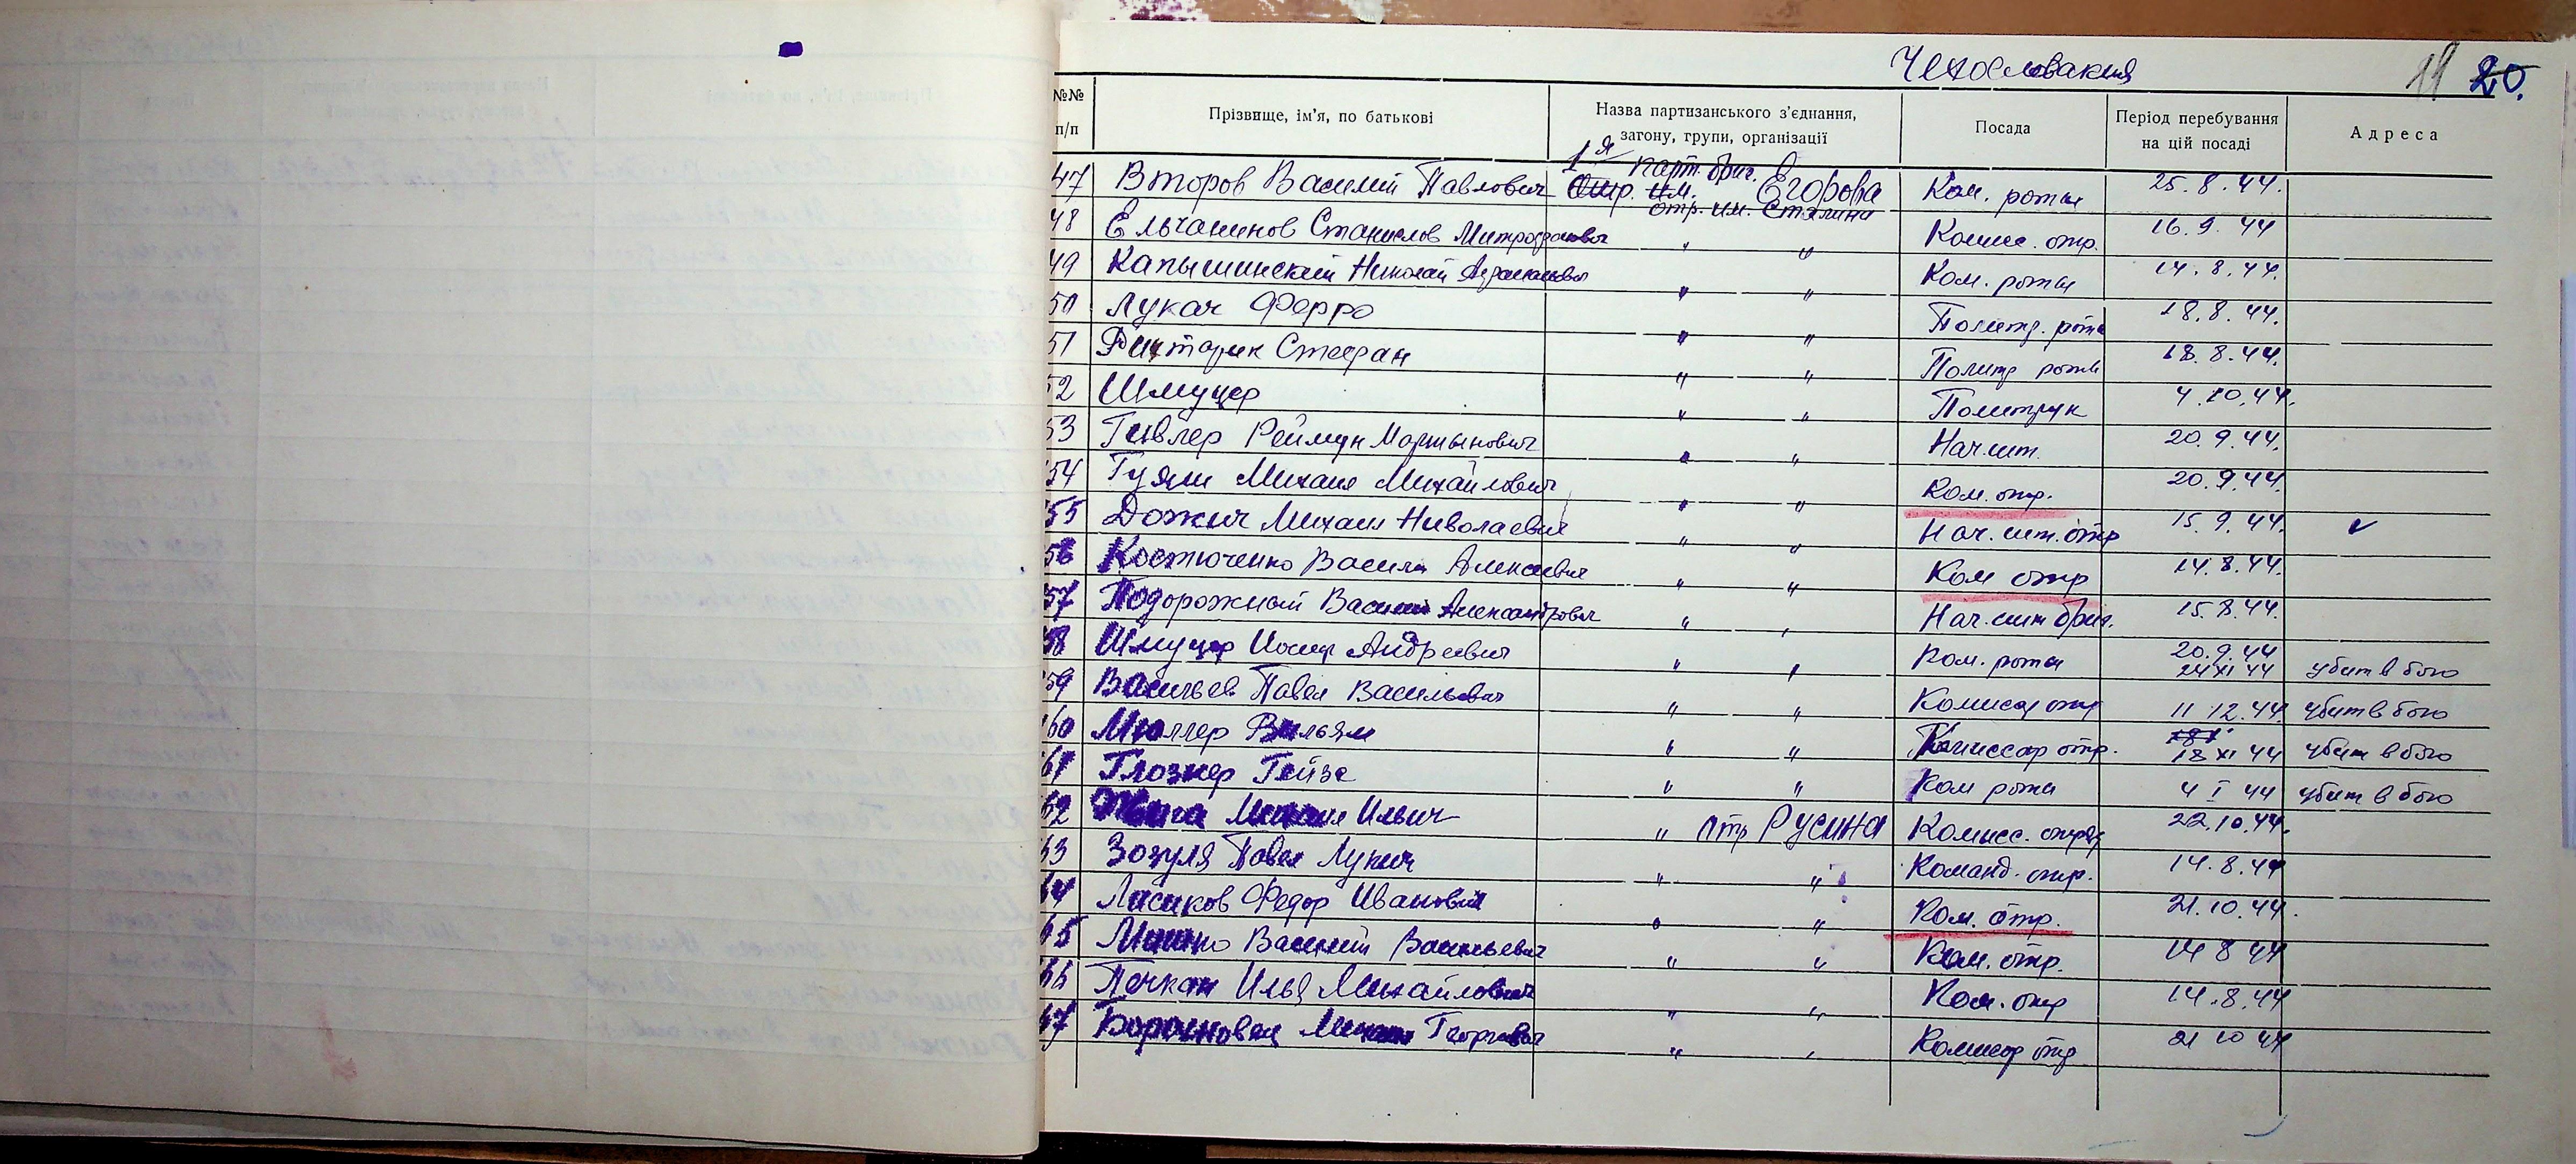 Чехословакия 11 20.
№№ п/п Прізвище, ім'я, по батькові Назва партизанського з'єднання, загону, групи, організації Посада Період перебування на цій посаді Адреса
1я парт. бриг.
47 Второв Василий Павлович Отр. им. Егорова Ком. роты 25.8.44.
отр. им. Сталина
48 Ельчанинов Станислов Митрофанович " " Комис. отр. 16.9.44
49 Капышинский Николай " " Ком. роты 14.8.44.
50 Лукач Ферро " " Политр. роты 18.8.44.
51 Стефан " " Политр роты 18.8.44.
52 Шмуцер " " Политрук 4.10.44.
53 Гивлер Реймун Мартынович " " Нач. шт. 20.9.44.
54 Михаил Михайлович " " Ком. отр. 20.9.44.
55 Дожич Михаил Николаевич " " Нач. шт. отр 15.9.44. ✓
56 Костюченко Васили Алексеевич " " Ком отр 14.8.44.
57 Подорожный Василий Александрович " " Нач. шт бриг. 15.8.44.
58 Шмуцер Иосиф Андреевич " " Ком. роты 20.9.44
24 XI 44 убит в бою
59 Васильев Павел Васильевич " " Комисар отр 11 12.44 убит в бою
60 Мюллер Вильям " " Комиссар отр. 18 XI 44 убит в бою
61 Глознер Гейза " " Ком роты 4 I 44 убит в бою
62 Михаил Ильич " отр Русина Комисс. отряд 22.10.44.
63 Зозуля Павел Лукич " " Команд. отр. 14.8.44
64 Лисиков Федор Иванович " " Ком. отр. 21.10.44.
65 Василий Васильевич " " Ком. отр. 14 8 44
66 Печкан Илья Михайлович " " Ком. отр 14.8.44
67 Михаил Георгиевич " " Комисар отр 21 10 44